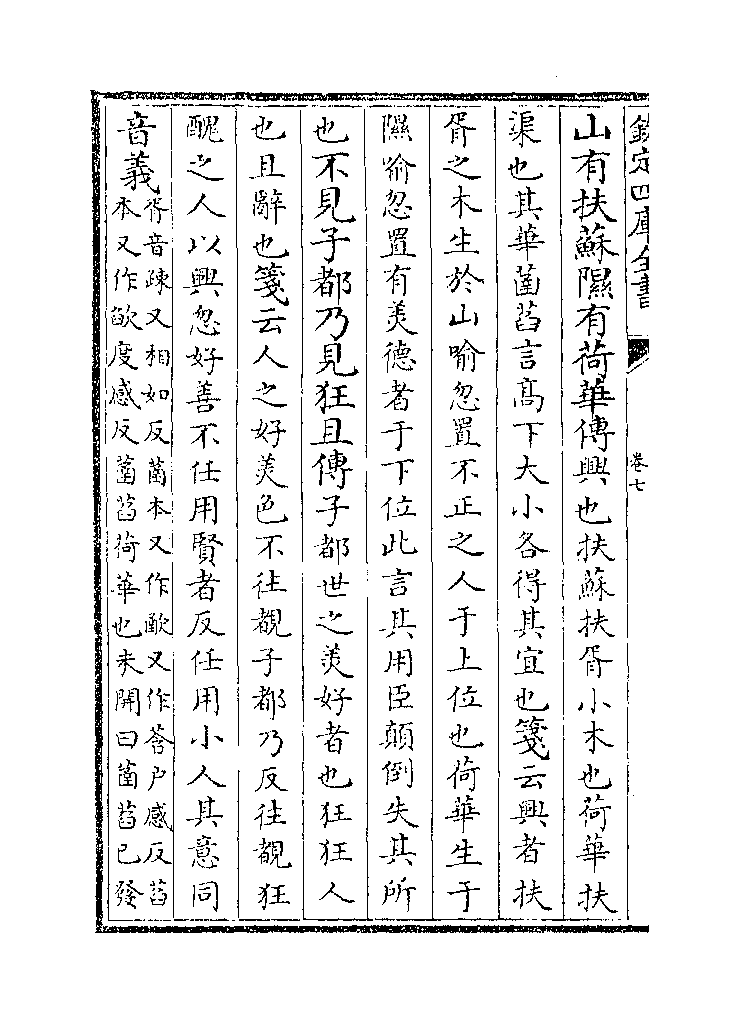 欽定四庫全書
卷七
山有扶蘇隰有荷華傳興也扶蘇扶胥小木也荷華扶
渠也其華菡萏言髙下大小各得其宜也箋云興者扶
胥之木生於山喻忽置不正之人于上位也荷華生于
隰喻忽置有羙德者于下位此言其用臣顛倒失其所
也不見子都乃見狂且傳子都世之羙好者也狂狂人
也且辭也箋云人之好羙色不往覩子都乃反往覩狂
醜之人以興忽好善不任用賢者反任用小人其意同
音義胥音疎又相如反菡本又作歛又作莟户感反萏
本又作欿度感反菡萏荷華也未開曰菡萏已發